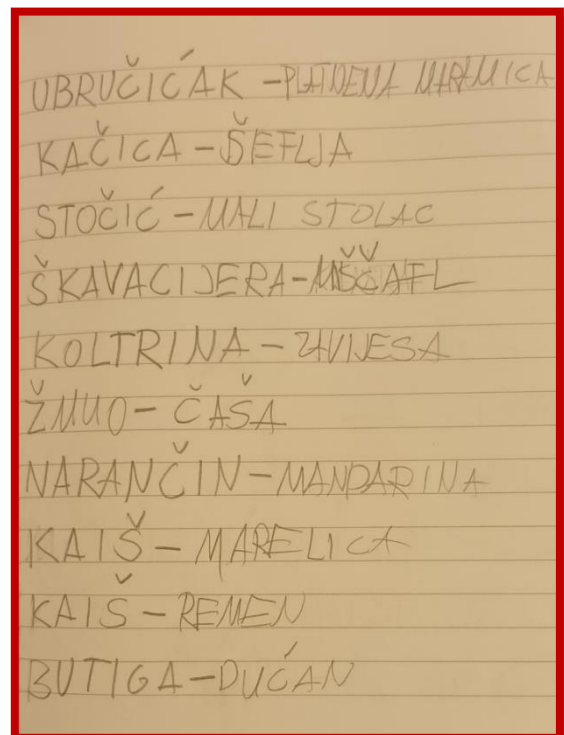 UBRUČIĆAK - PLATNENA MARAMICA
KAČICA - ŠEFLJA
STOČIĆ - MALI STOLAC
ŠKAVACIJERA -
KOLTRINA - ZAVIJESA
ŽMUO - ČAŠA
NARANČIN - MANDARINA
KAIŠ - MARELICA
KAIŠ - REMEN
BUTIGA - DUĆAN